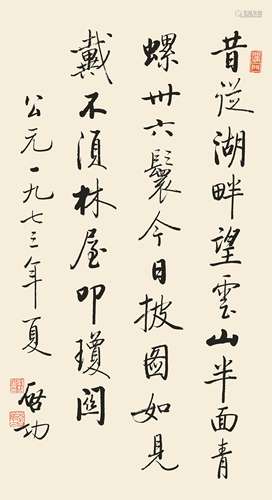 昔從湖畔望雲山半面青
螺卅六鬟今日披圖如見
戴不須林屋叩瓊關
公元一九七三年夏
啓功